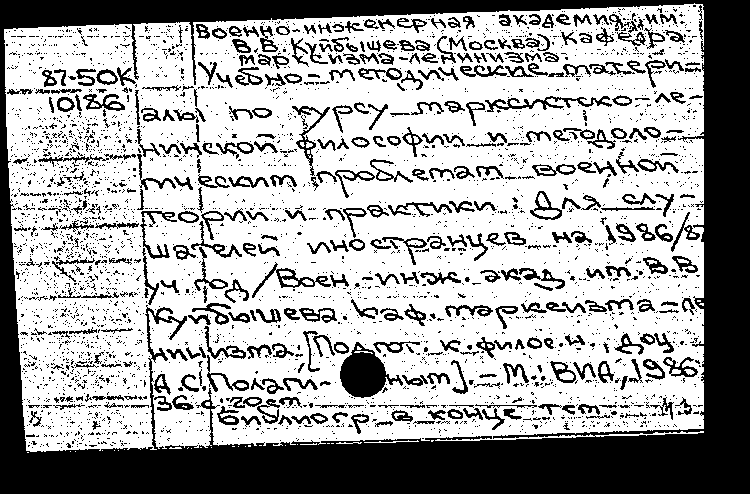 Военно-инженерная академия им.
В.В. Куйбышева (Москва). Кафедра
марксизма-ленинизма.
87-50К
Учебно-методические матери-
10186
алы по курсу марксистско-ле-
нинской философии и методоло-
гическим проблемам военной
теории и практики : Для слу-
шателей иностранцев на 1986/87
уч. год / Воен.-инж. акад. им. В.В
Куйбышева. Каф. марксизма-ле
нинизма. [Подгот. к.филос.н., доц.
А.С. Полаги- ным]. - М.: ВИА, 1986
36 с.; 20 см.
Библиогр. в конце тем.